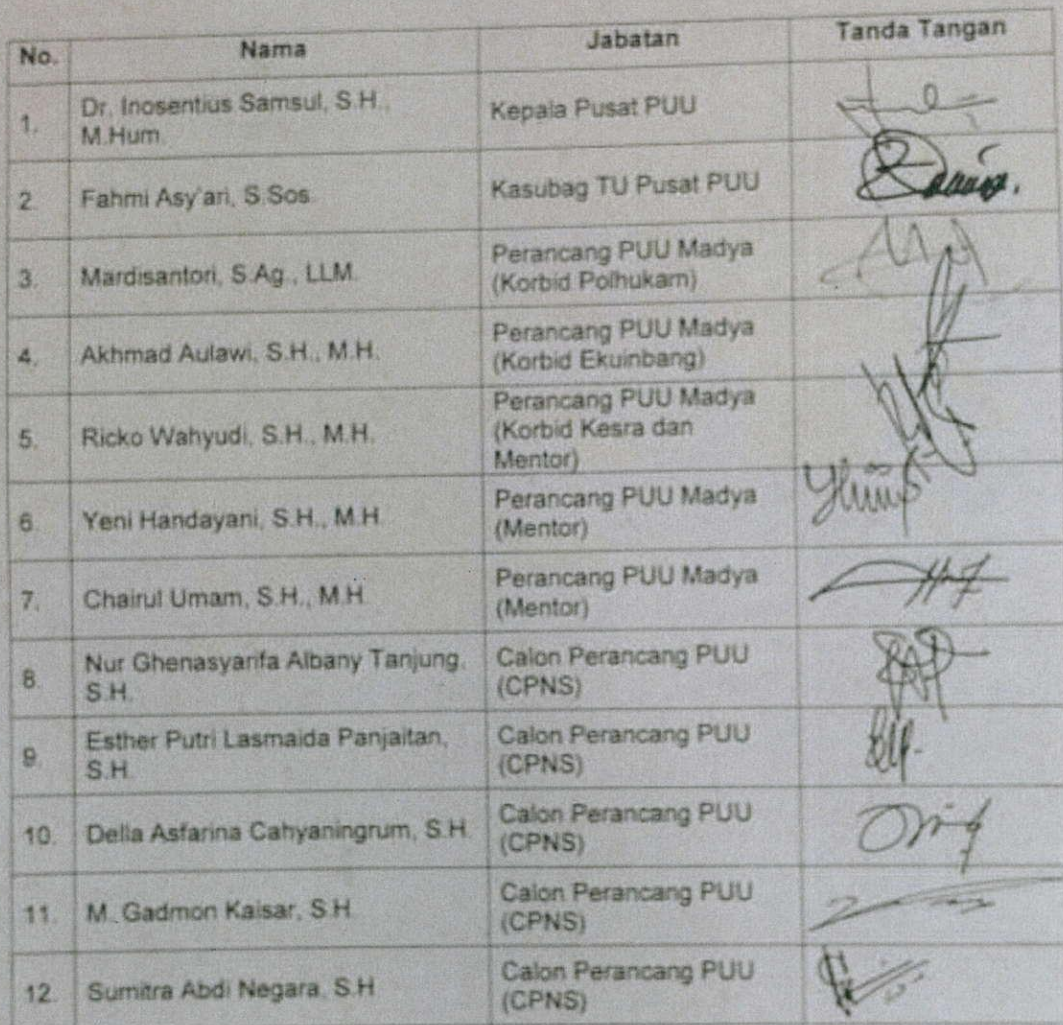 No. Nama Jabatan Tanda Tangan
1. Dr. Inosentius Samsul, S.H., Kepala Pusat PUU
M.Hum.
2. Fahmi Asy'ari, S.Sos. Kasubag TU Pusat PUU
3. Mardisantori, S.Ag., LLM. Perancang PUU Madya
(Korbid Polhukam)
4. Akhmad Aulawi, S.H., M.H. Perancang PUU Madya
(Korbid Ekuinbang)
5. Ricko Wahyudi, S.H., M.H. Perancang PUU Madya
(Korbid Kesra dan
Mentor)
6. Yeni Handayani, S.H., M.H. Perancang PUU Madya
(Mentor)
7. Chairul Umam, S.H., M.H. Perancang PUU Madya
(Mentor)
8. Nur Ghenasyarifa Albany Tanjung, Calon Perancang PUU
S.H. (CPNS)
9. Esther Putri Lasmaida Panjaitan, Calon Perancang PUU
S.H. (CPNS)
10. Della Asfarina Cahyaningrum, S.H. Calon Perancang PUU
(CPNS)
11. M. Gadmon Kaisar, S.H. Calon Perancang PUU
(CPNS)
12. Sumitra Abdi Negara, S.H. Calon Perancang PUU
(CPNS)